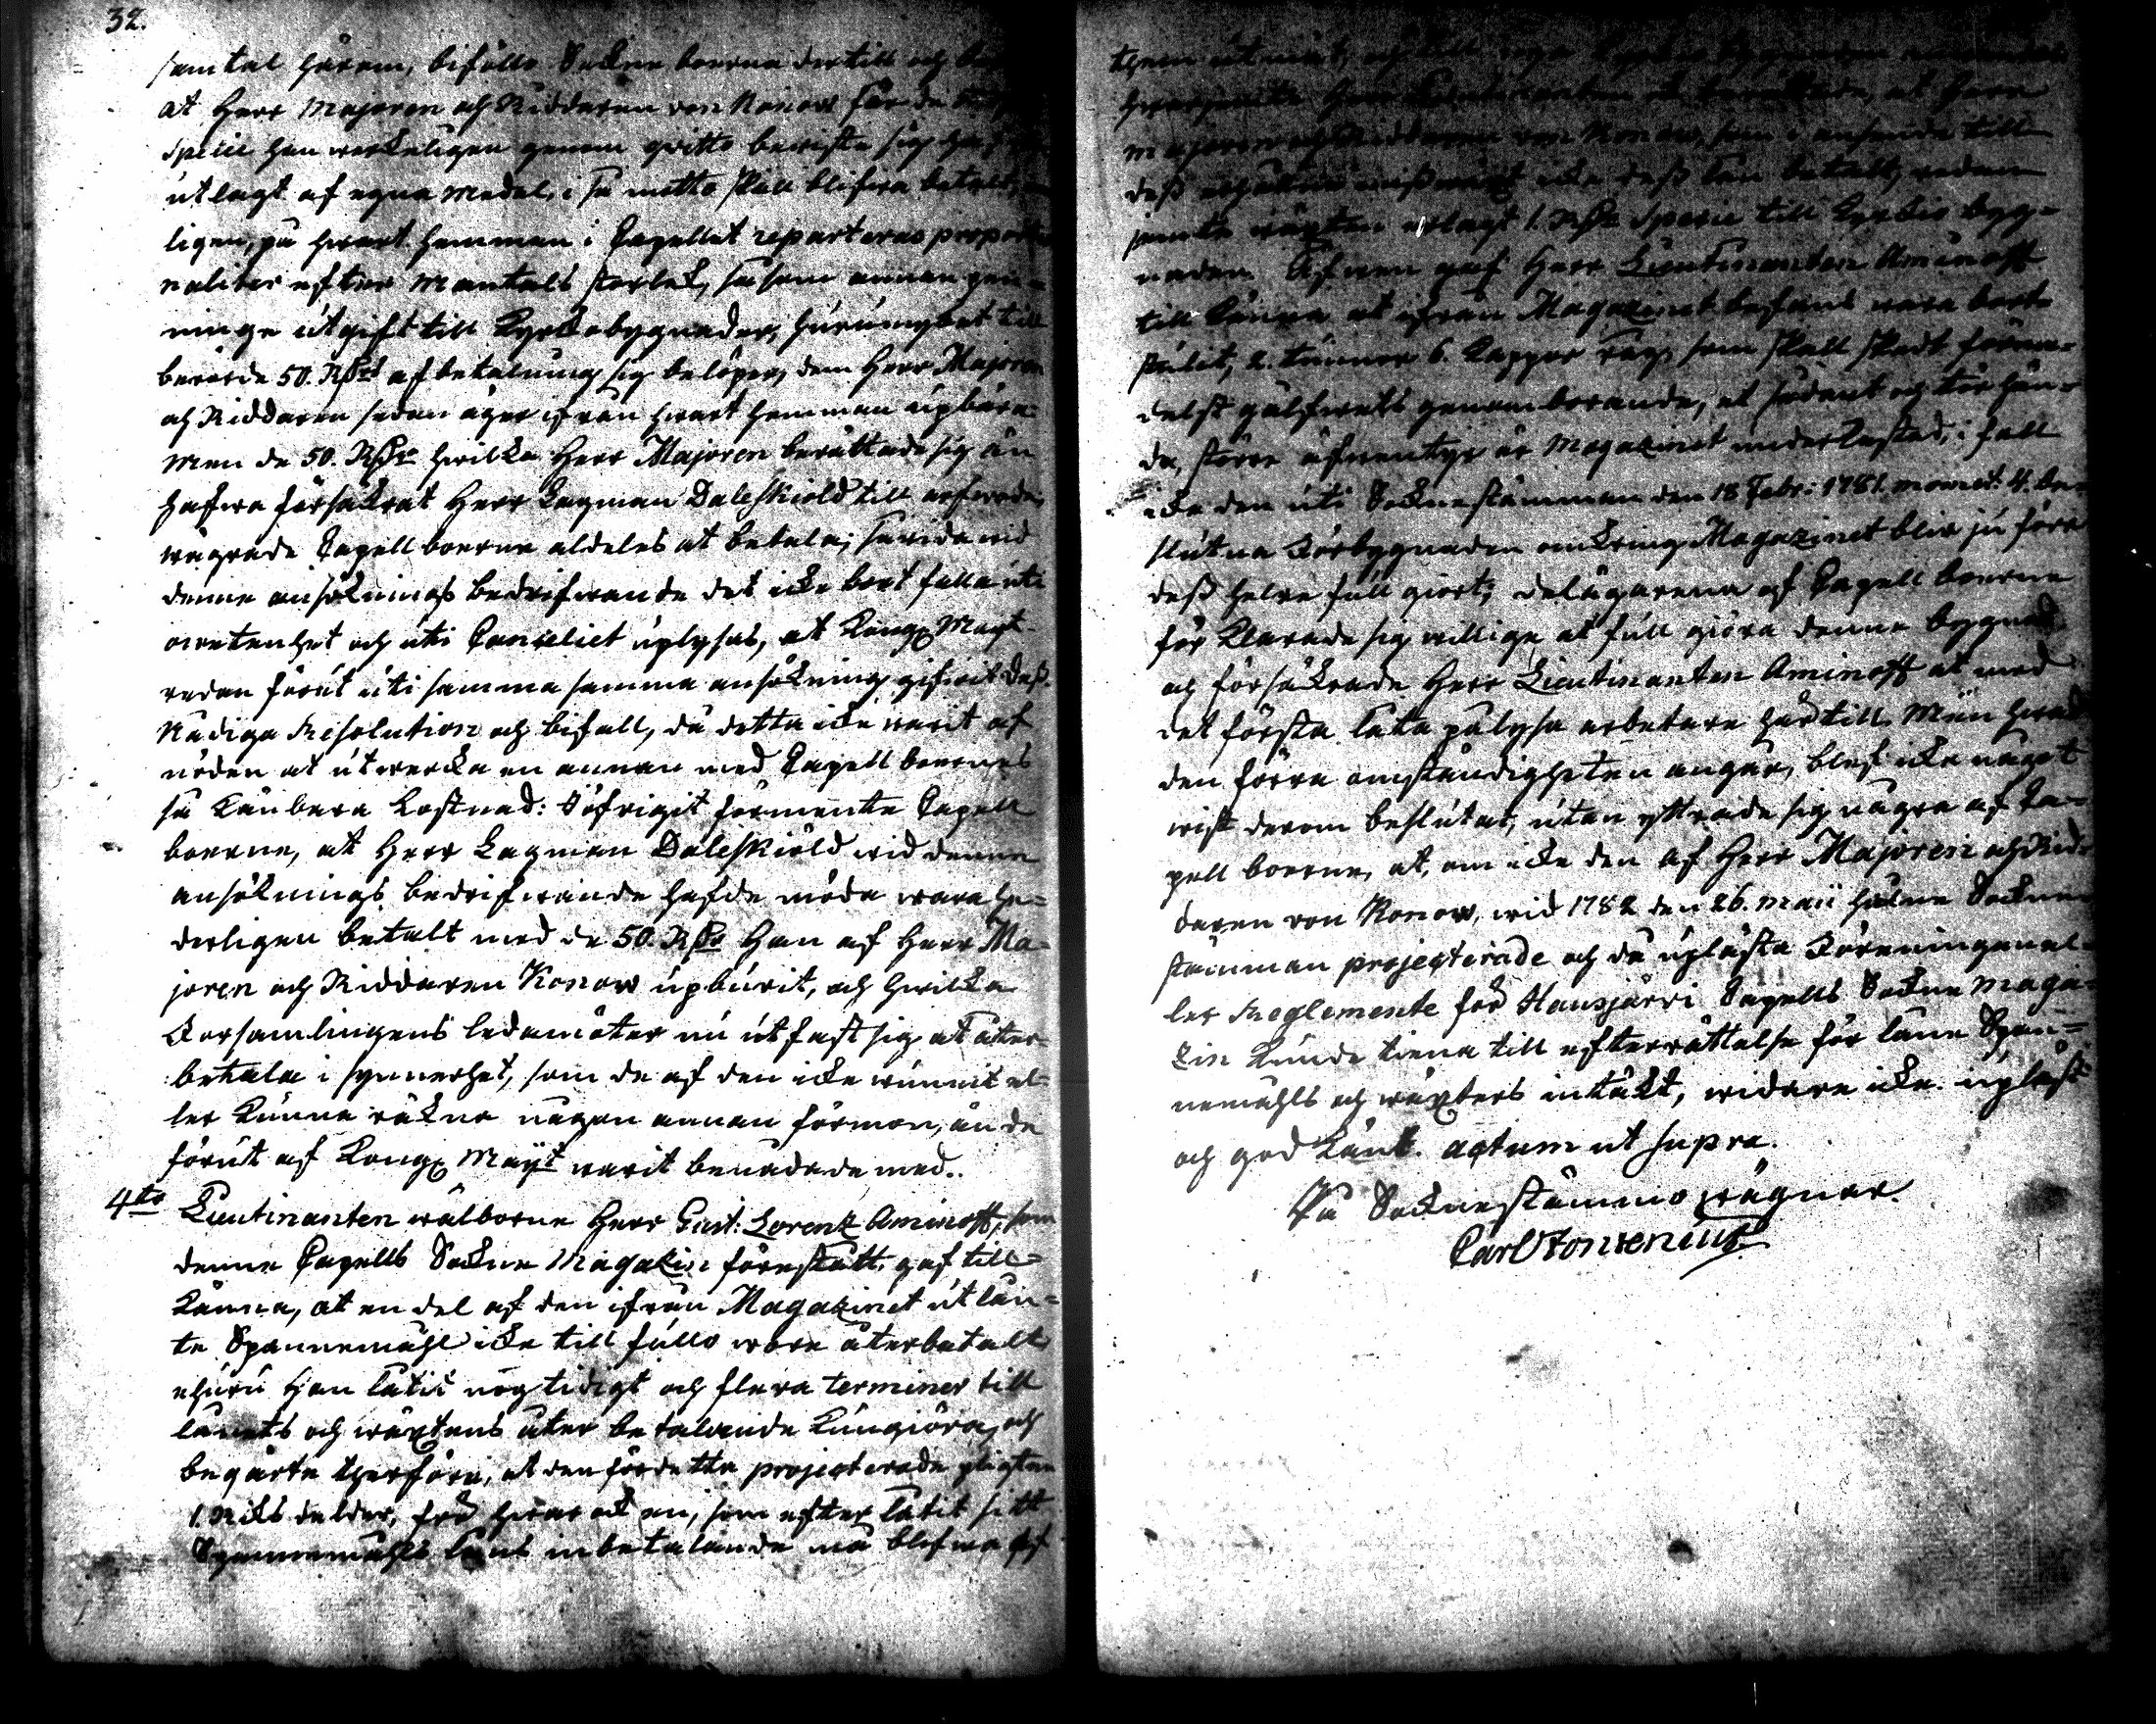 32.
samtal härom, biföllo Sockneboerna dertill och
at Herr Majoren och Riddaren von Konow får de
Specie han werkeligen genom qvitto bewiste sig
utlagt af egna medel, i så motto skall blifwa betalt,
ligen, på hwart hemman i Capellet reparteras propor
naliter efter Mantals storlek, så som annan pen-
ninge utgift till Kyrkobygnader, hurumyket till
berörde 50. Rdr afbetalning sig belöper, dem Herr Majoren
och Riddaren sedan äger ifrån hwart hemman upbära.
Men de 50. Rdr hwilka Herr Majoren berättade sig än
hafwa försäkrat Herr Lagman Daleskiöld till arfwode,
wägrade Capellboerne aldeles at betala; sawida wid
denne ansöknings bedrifwande det icke bort falla uti
owetenhet och uti Canceliet uplysas, at Kongl Mayt
redan förut uti samma samma ansökning gifwit dess
Nådiga Resolution och bifall, då detta icke warit af
nöden at utwerka en annan med Capellboernes
så kånbara kostnad: Töfrigit förmente Capell
boerne, at Herr Lagman Daleskiöld wid denne
ansöknings bedrifwande hafde möda wara he-
derligen betalt med de 50. Rdr Han af Herr Ma-
joren och Riddaren Konow upburit, och hwilka
Forsamlingens ledamöter nu utfäst sig at åter-
betala i synnerhet, som de af den icke wunnit el-
ler kunna räkna någon annan förmon, än de
förut af Kongl Mayt warit benådade med.
4to Lieutinanten wälborne Herr Gust: Lorentz Aminoff, som
denne Capells Sockne Magazin förestått, gaf till-
känna, at en del af den ifrån Magazinet utlån-
te Spannemåhl icke till fullo wore återbetalt
ehuru Han låtit nog tidigt och flera terminer till
lånets och wäxtens åter betalande kungiöra, och
begärte therföre, at den för detta projecterade pligten
1. Riksdaler, för hwar och en, som efter låtit sitt
Spannemåhls lån inbetalande må blifwa af
them utmät,
Majoren och Riddaren von Konow, som i anseende till
dess icke dess lån betalt, redan
wäxten erlagt 1. Rdr Specie till Kyrkio byg-
naden. Äfwen gaf Herr Lieutinanten Aminoff
till känna at ifrån Magazinet befans wara bort-
stulit, 2. tunnor 6. Kappar råg, som skall skedt förme-
delst gålfwets genomborande, at sådant och tör hän-
da, större äfwentyr är Magazinet underkastad, i fall
icke den uti Socknestämman den 18 Febr: 1781. moment. 4. be-
slutna Förbygnaden omkring Magazinet blir ju förr
dess helre full giort; delägarena af Capell boerne
förklarade sig willige at full giöra denne bygnad
och försäkrade Herr Lieutinanten Aminoff at med
det första låta pålysa arbetare här till. Men hwad
den förra omständigheten angår, blef icke något
wist derom beslutat, utan yttrade sig någre af Ca-
pell boerne, at, om icke den af Herr Majoren och Rid-
daren von Konow, wid 1782 den 26. Maii hålne Sockne
stämman projecterade och då uplästa Föreningen el-
ler Reglemente för Hausjärvi Capells Sockne Maga-
zin kunde tiena till efterrättelse för låne Span-
nemåhls och wäxters intäkt, widare icke. upläst
och god känt. actum ut supra.
På Socknestämmo wägnar.
Carl Fonsenius